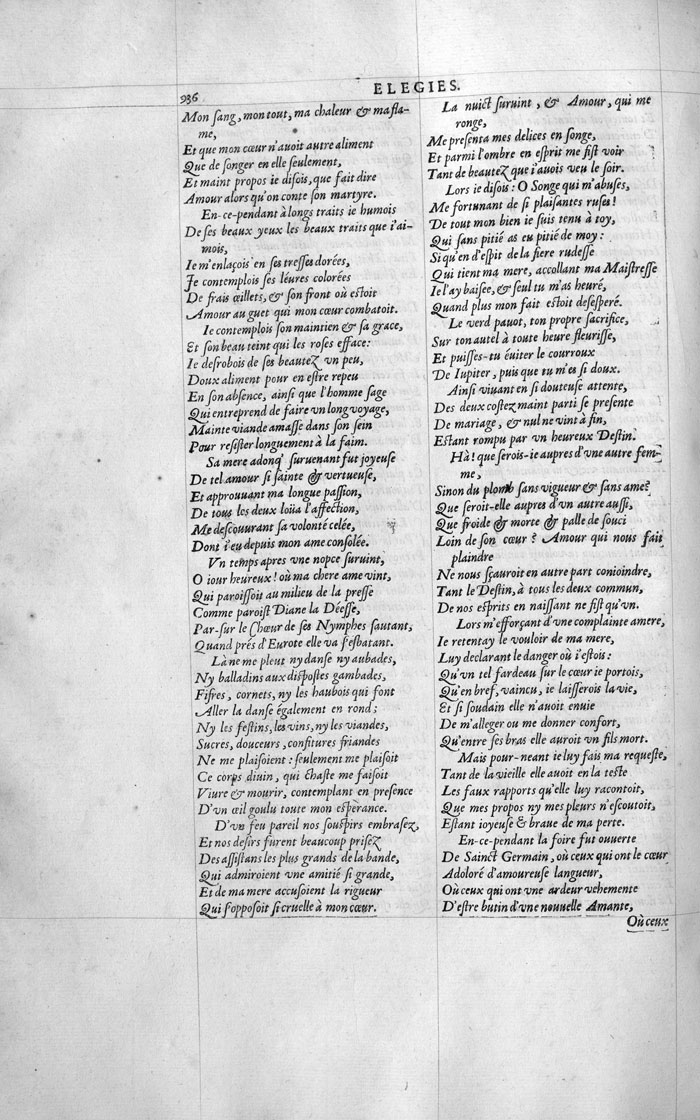 936
ELEGIES.
Mon ſang, mon tout, ma chaleur & ma fla-
me,
Et que mon cœur n'auoit autre aliment
Que de ſonger en elle ſeulement,
Et maint propos ie diſois, que fait dire
Amour alors qu'on conte ſon martyre.
En-ce-pendant à longs traits ie humois
De ſes beaux yeux les beaux traits que i'ai-
mois,
Ie m'enlaçois en ſes treſſes dorées,
Ie contemplois ſes léures colorées
De frais œillets, & ſon front où eſtoit
Amour au guet qui mon cœur combatoit.
Ie contemplois ſon maintien & ſa grace,
Et ſon beau teint qui les roſes efface:
Ie deſrobois de ſes beautez vn peu,
Doux aliment pour en eſtre repeu
En ſon abſence, ainſi que l'homme ſage
Qui entreprend de faire vn long voyage,
Mainte viande amaſſe dans ſon ſein
Pour reſiſter longuement à la faim.
Sa mere adonq' ſuruenant fut ioyeuſe
De tel amour ſi ſainte & vertueuſe,
Et approuuant ma longue paſſion,
De tous les deux loüa l'affection,
Me deſcouurant ſa volonté celée,
Dont i'eu depuis mon ame conſolée.
Vn temps apres vne nopce ſuruint,
O iour heureux! où ma chere ame vint,
Qui paroiſſoit au milieu de la preſſe
Comme paroiſt Diane la Déeſſe,
Par-ſur le Chœur de ſes Nymphes ſautant,
Quand prés d'Eurote elle va s'eſbatant.
Là ne me pleut ny danſe ny aubades,
Ny balladins aux diſpoſtes gambades,
Fifres, cornets, ny les haubois qui font
Aller la danſe également en rond;
Ny les feſtins, les vins, ny les viandes,
Sucres, douceurs, confitures friandes
Ne me plaiſoient: ſeulement me plaiſoit
Ce corps diuin, qui chaſte me faiſoit
Viure & mourir, contemplant en preſence
D'vn œil goulu toute mon eſpérance.
D'vn feu pareil nos ſouſpirs embraſez,
Et nos deſirs furent beaucoup priſez
Des aſſiſtans les plus grands de la bande,
Qui admiroient vne amitié ſi grande,
Et de ma mere accuſoient la rigueur
Qui s'oppoſoit ſi cruelle à mon cœur.
La nuict ſuruint, & Amour, qui me
ronge,
Me preſenta mes delices en ſonge,
Et parmi l'ombre en eſprit me fiſt voir
Tant de beautez que i'auois veu le ſoir.
Lors ie diſois: O Songe qui m'abuſes,
Me fortunant de ſi plaiſantes ruſes!
De tout mon bien ie ſuis tenu à toy,
Qui ſans pitié as eu pitié de moy:
Si qu'en d'eſpit de la fiere rudeſſe
Qui tient ma mere, accollant ma Maiſtreſſe
Ie l'ay baiſee, & ſeul tu m'as heuré,
Quand plus mon fait eſtoit deſeſperé.
Le verd pauot, ton propre ſacrifice,
Sur ton autel à toute heure fleuriſſe,
Et puiſſes-tu éuiter le courroux
De Iupiter, puis que tu m'es ſi doux.
Ainſi viuant en ſi douteuſe attente,
Des deux coſtez maint parti ſe preſente
De mariage, & nul ne vint à fin,
Eſtant rompu par vn heureux Deſtin.
Hà! que ſerois-ie aupres d'vne autre fem-
me,
Sinon du plomb ſans vigueur & ſans ame?
Que ſeroit-elle aupres d'vn autre auſſi,
Que froide & morte & palle de ſouci
Loin de ſon cœur? Amour qui nous fait
plaindre
Ne nous ſçauroit en autre part conioindre,
Tant le Deſtin, à tous les deux commun,
De nos eſprits en naiſſant ne fiſt qu'vn.
Lors m'efforçant d'vne complainte amere,
Ie retentay le vouloir de ma mere,
Luy declarant le danger où i'eſtois:
Qu'vn tel fardeau ſur le cœur ie portois,
Qu'en bref, vaincu, ie laiſſerois la vie,
Et ſi ſoudain elle n'auoit enuie
De m'alleger ou me donner confort,
Qu'entre ſes bras elle auroit vn fils mort.
Mais pour-neant ie luy fais ma requeſte,
Tant de la vieille elle auoit en la teſte
Les faux rapports qu'elle luy racontoit,
Que mes propos ny mes pleurs n'eſcoutoit,
Eſtant ioyeuſe & braue de ma perte.
En-ce-pendant la foire fut ouuerte
De Sainct Germain, où ceux qui ont le cœur
Adoloré d'amoureuſe langueur,
Où ceux qui ont vne ardeur vehemente
D'eſtre butin d'vne nouuelle Amante,
Où ceux